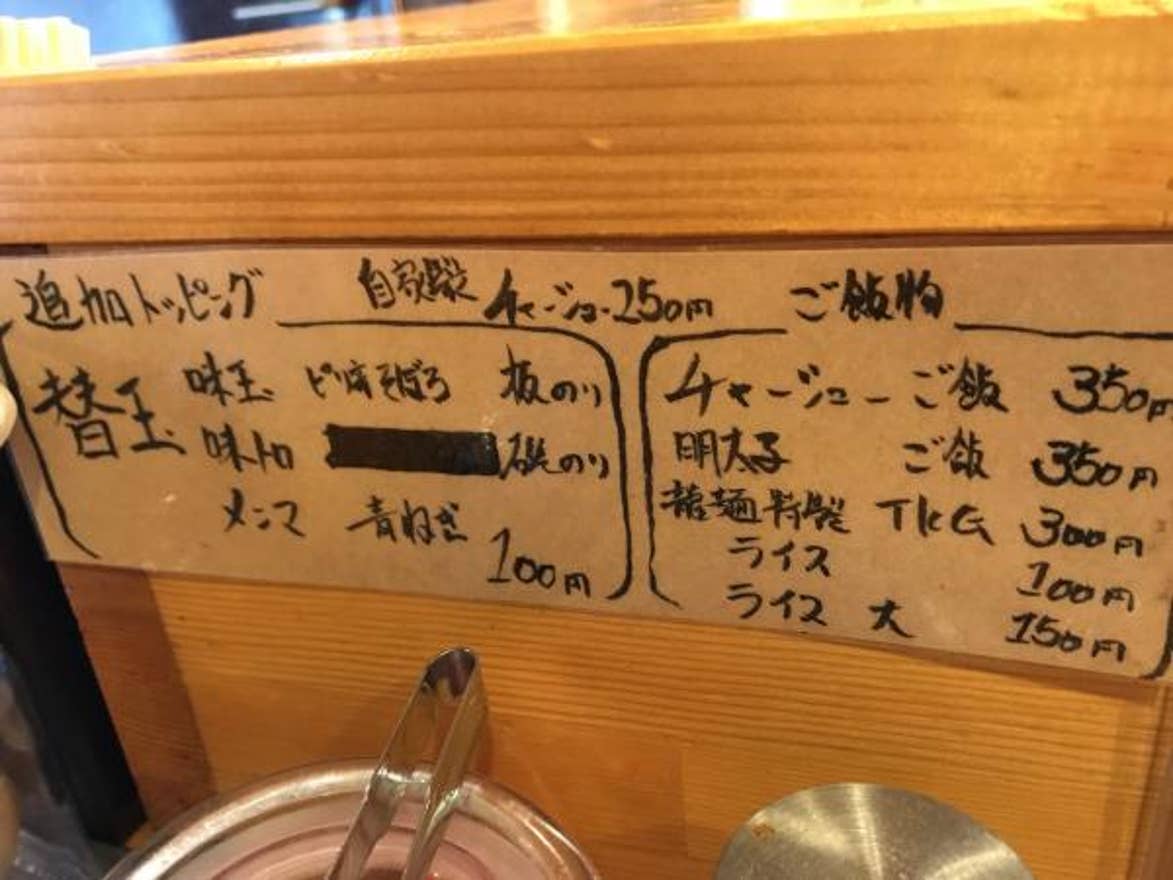 追加トッピング 自家製 チャーシュー250円
替玉 味玉 ピリ辛そぼろ 板のり
味トロ 磯のり
メンマ 青ねぎ
100円
ご飯物
チャーシューご飯 350円
明太子 ご飯 350円
龍麺特製 TKG 300円
ライス 100円
ライス 大 150円